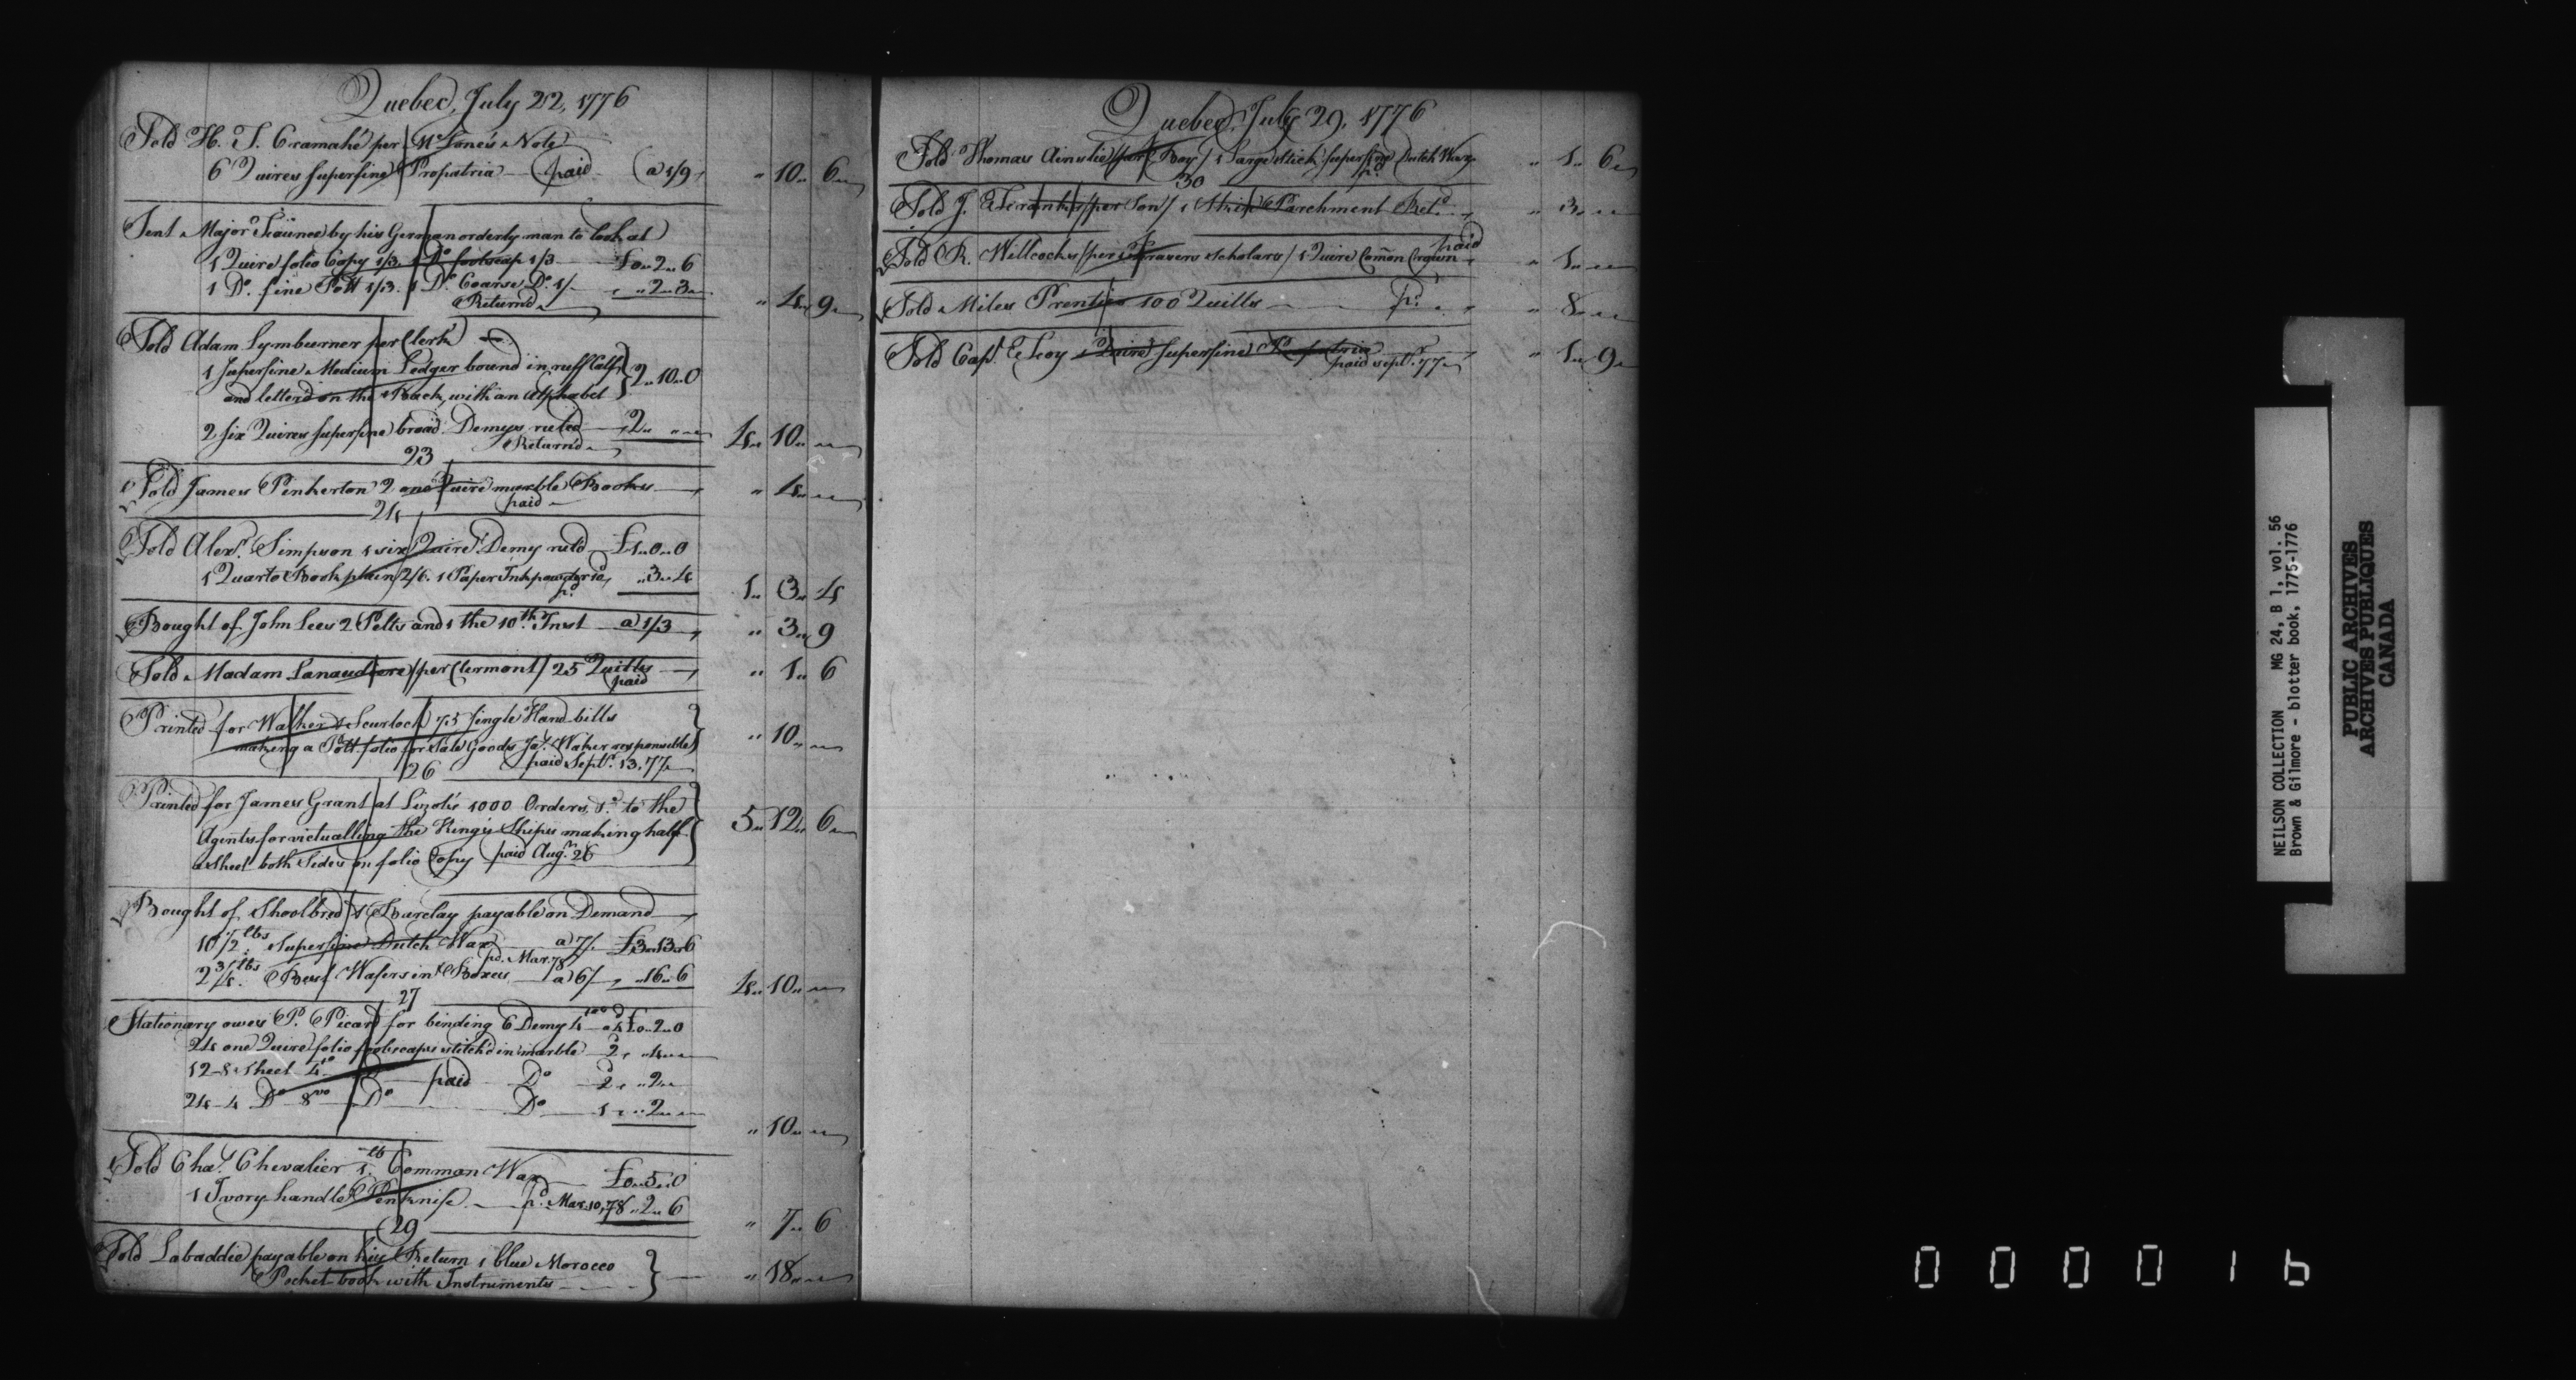 Quebec, July 22, 1776
Sold H. T. Cramahé per Note
6 Quires superfine Propatria paid a 1/9 " 10 " 6
Sent Major by his German orderly man to look at
1 Quire folio Copy 1/3. 1 Do. foolscap 1/3 £0 " 2 " 6
1 Do. fine Pott 1/3. 1 Do. Coarse Do. 1/ " 2 " 3
Returnd " 4 " 9
Sold Adam Lymburner per Clerk
1 superfine Medium Ledger bound in ruff Calf
and letterd on the Back, with an Alphabet } 2 " 10 " 0
2 six Quires superfine broad Demys ruled 2 " "
Returnd 4 " 10 "
23
Sold James Pinkerton 2 one Quire marble Books " 4 "
paid
24
Sold Alexr. Simpson 1 six Quire Demy ruld £1 " 0 " 0
1 Quarto Book plain 2/6. 1 Paper Inkpowder 10d " 3 " 4
pd. 1 " 3 " 4
Bought of John Lees 2 Pelts and 1 the 10th. Inst a 1/3 " 3 " 9
Sold Madam Lanaudiere /per Clermont/ 25 Quills " 1 " 6
paid
Printed for Walker & Scurlock 75 single Hand bills
making a Pott folio for Sale Goods Jas. Waker responsible } " 10 "
paid Septr. 13. 77
26
Printed for James Grant at 1000 Orders to the
Agents for victualling the King's Ships making half } 5 " 12 " 6
a sheet both Sides on folio Copy paid Augst. 26
Bought of Shoolbred & Barclay payable on Demand
10 1/2 lbs. Superfine Dutch Wax a 7/. £3 " 13 " 6
pd. Mar. 78
2 3/4 lbs. Best Wafers in Boxes a 6/ " 16 " 6
4 " 10 "
27
Stationary owes P. Picard for binding 6 Demy 4to a 4d £0 " 2 " 0
24 one Quire folio foolscaps stitch'd in marble 2 " 4 "
12 - 8 sheet 4to Do paid Do 2 " 2 "
24 - 4 Do 8vo Do Do 1 " 2 "
" 10 "
Sold Chas. Chevalier 1 lb. Common Wax £0 " 5 " 0
1 Ivory handle Penknife pd. Mar. 10, 78 " 2 " 6
" 7 " 6
29
Sold Labaddie payable on his Return 1 blue Morocco
Pocket-book with Instruments } " 18 "
Quebec, July 29, 1776
Sold Thomas Ainslie /per Boy/ 1 large stick superfine Dutch Wax " 1 " 6
pd.
30
Sold J. /per Son/ 1 Skin Parchment Retd. " 3 "
paid
Sold R. Willcocks /per scholars/ 1 Quire Comon Crown " 1 "
Sold Miles Prentice 100 Quills pd. " 8 "
Sold Capt. 1 Quire superfine Propatria " 1 " 9
paid septr. 77
NEILSON COLLECTION MG 24, B 1, vol. 56
Brown & Gilmore - blotter book, 1775-1776
PUBLIC ARCHIVES
ARCHIVES PUBLIQUES
CANADA
000016